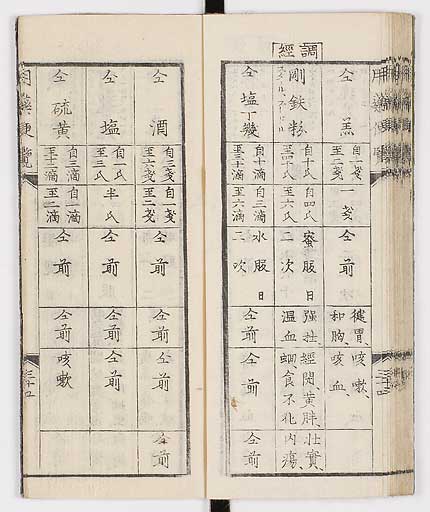 調經
仝 羔
自一戔
至二戔
一戔
仝前
健胃、
和胸
咳嗽、
咳血、
剛鉄粉
自十氏
至四十氏
自四氏
至六氏
蜜服 日
二次
强壮
温血
經閉、黄胖、
蛔食不化
壮實、
内瘍、
仝 塩丁幾
自十滴
至三十滴
自三滴
至六滴
水服 日
二次
仝前
仝前
仝前
仝 酒
自三戔
至六戔
自一戔
至二戔
仝前
仝前
仝前
仝前
仝 塩
自一氏
至三氏
半氏
仝前
仝前
仝前
仝 硫黄
自十滴
自一滴
至二滴
仝前
仝前
咳嗽
用藥便覧
三十五